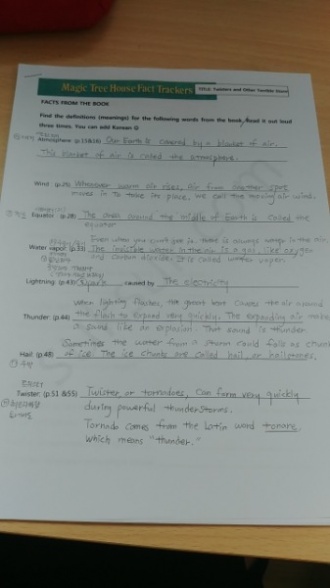 Magic Tree House Fact Trackers
TITLE: Twisters and Other Terrible Storms
FACTS FROM THE BOOK
Find the definitions (meanings) for the following words from the book. Read it out loud
three times. You can add Korean
Atmosphere (p.15&16) Our Earth is covered by a blanket of air.
This blanket of air is called the atmosphere.
Wind (p.25) Whenever warm air rises, air from another spot
moves in to take its place. We call the moving air wind.
Equator (p.28) The area around the middle of Earth is called the
equator
Even when you can't see it, there is always water in the air.
Water vapor (p.33) The invisible water in the air is a gas, like oxygen
and carbon dioxide. It is called water vapor.
Lightning (p.43) Spark caused by The electricity
When lightning flashes, the great heat causes the air around
Thunder (p.44) the flash to expand very quickly. The expanding air makes
a sound like an explosion. That sound is thunder
Sometimes the water from a storm could falls as chunks
Hail (p.48) of ice. The ice chunks are called hail or hailstones.
Twister (p.51 &55) Twister or tornadoes, can form very quickly
during powerful thunderstorms.
Tornado comes from the Latin word tonare,
which means "thunder."